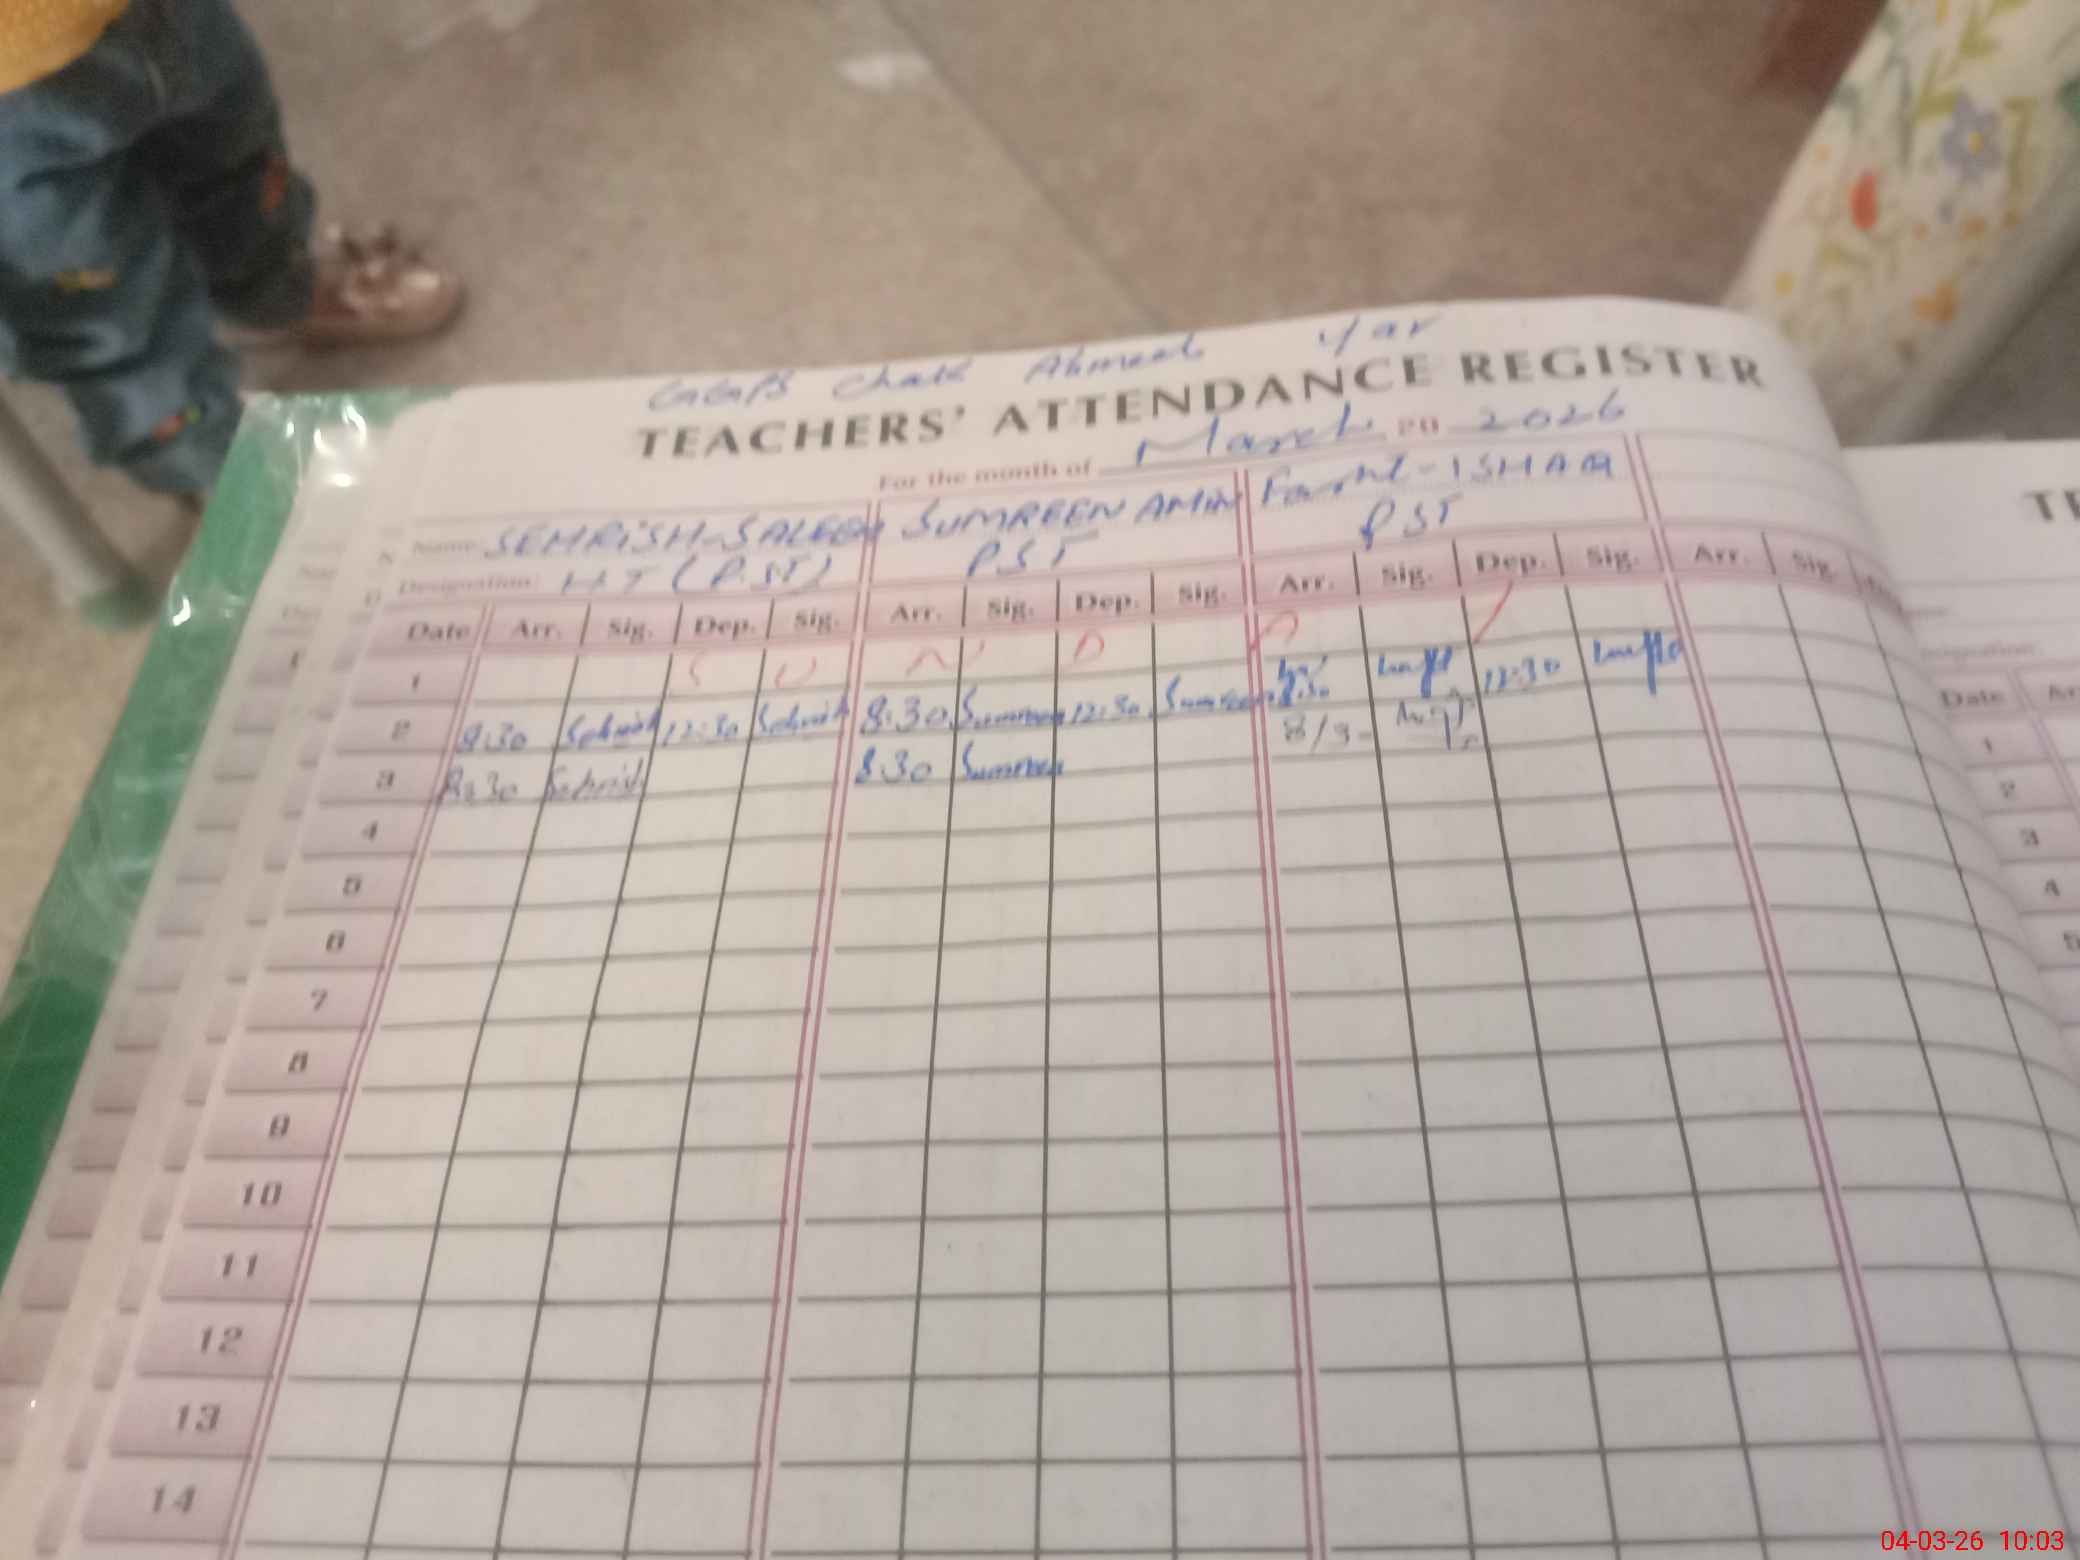 GGPS Chak Ahmed Yar
TEACHERS' ATTENDANCE REGISTER
For the month of March 20 2026
Name SEHRISH-SALEEM SUMREEN AMIN -ISHAQ
Designation: HT (P.ST) PST PST
Date Arr. Sig. Dep. Sig. Arr. Sig. Dep. Sig. Arr. Sig. Dep. Sig. Arr. Sig.
1 S U N D A
2 8:30 Sehrish 12:30 Sehrish 8:30 Sumreen 12:30 Sumreen 8:30 12:30
3 8:30 Sehrish 8:30 Sumreen
4
5
6
7
8
9
10
11
12
13
14
TE
Date
1
2
3
4
5
04-03-26 10:03